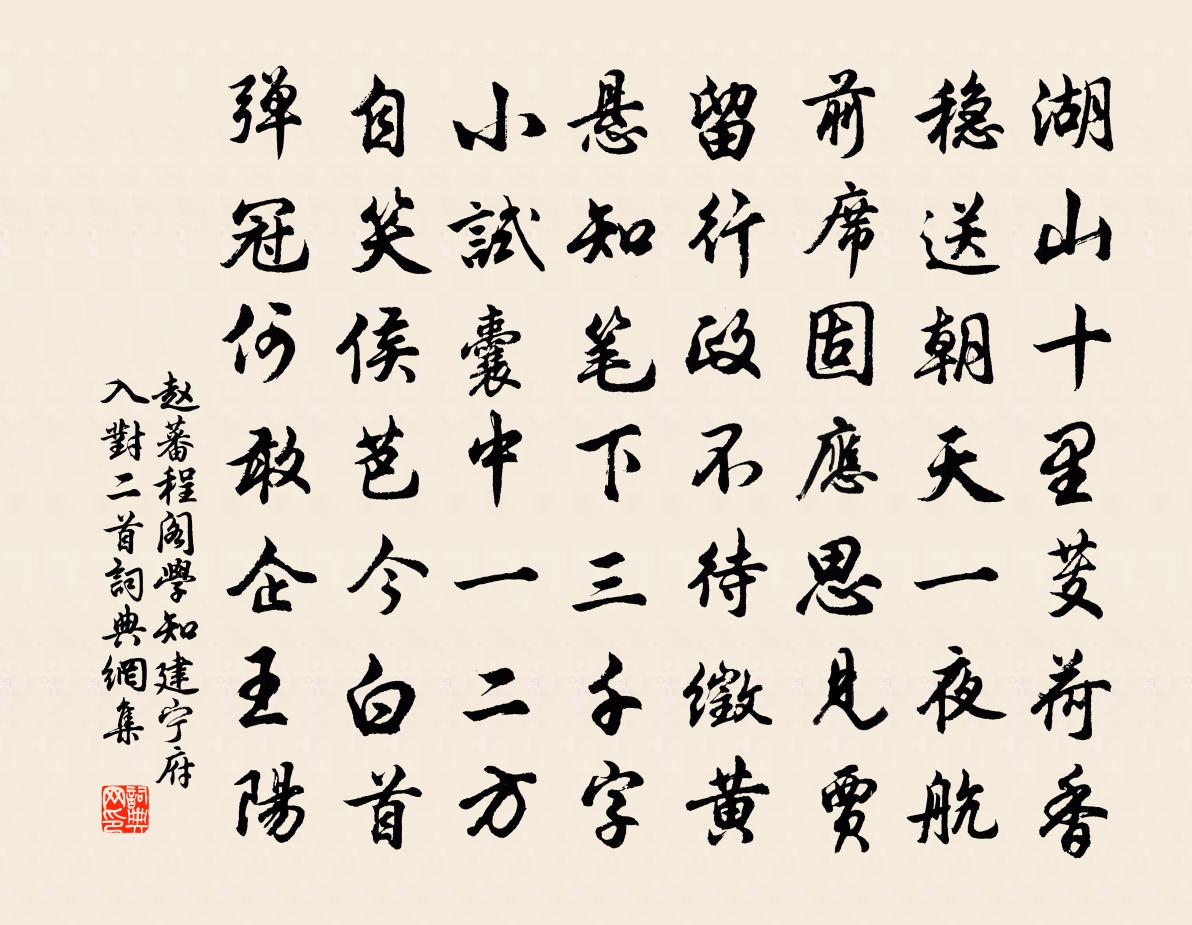 湖山十里芰荷香
稳送朝天一夜航
前席固應思見賈
留行政不待徵黄
悬知笔下三千字
小試囊中一二方
自笑侯芭今白首
弹冠何敢企王陽
赵蕃程阁學知建宁府
入對二首詞典網集
詞典网印